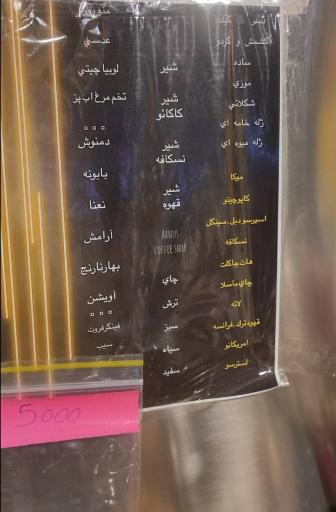 کشمش و گردو
ساده
موزی
شکلاتی
ژله خامه ای
ژله میوه ای
موکا
کاپوچینو
اسپرسودبل.سینگل
نسکافه
هات چاکلت
چای ماسالا
لاته
قهوه ترک.فرانسه
امریکانو
شیر
شیر
کاکائو
شیر
نسکافه
شیر
قهوه
COFFEE SHOP
چای
ترش
سبز
سیاه
سفید
عدسی
لوبیا چیتی
تخم مرغ اب پز
دمنوش
بابونه
نعنا
آرامش
بهارنارنج
آویشن
سیب
5000